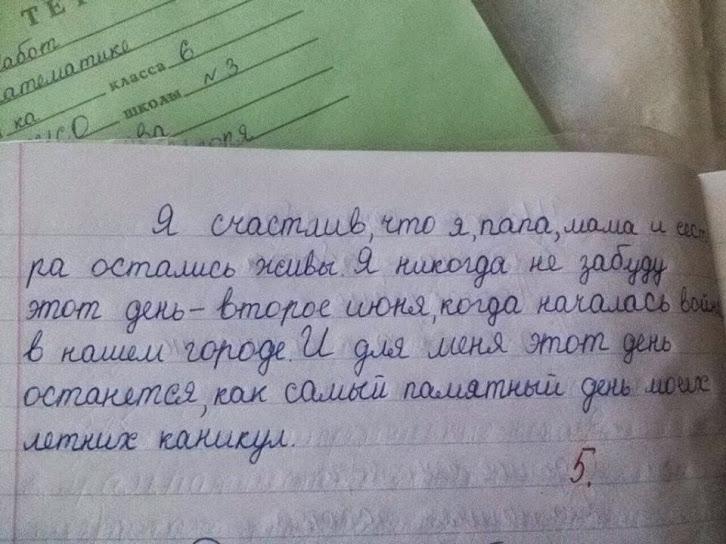 ТЕ
работ
математике
ка класса 6
школы №3
Я счастлив, что я, папа, мама и сест
ра остались живы. Я никогда не забуду
этот день – второе июня, когда началась война
в нашем городе. И для меня этот день
останется, как самый памятный день моих
летних каникул.
5.